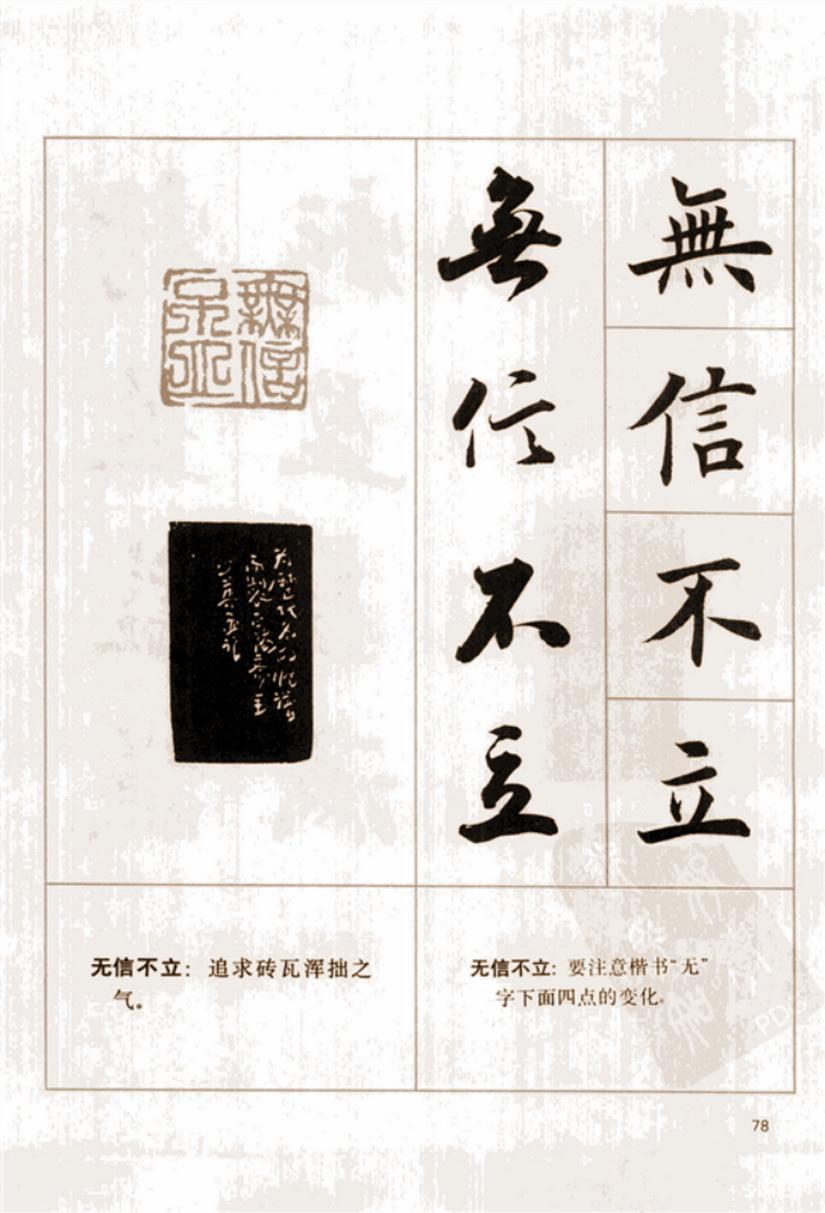 無
信
不
立
無信不立
無信不立
无信不立：追求砖瓦浑拙之
气。
无信不立：要注意楷书“无”
字下面四点的变化。
78